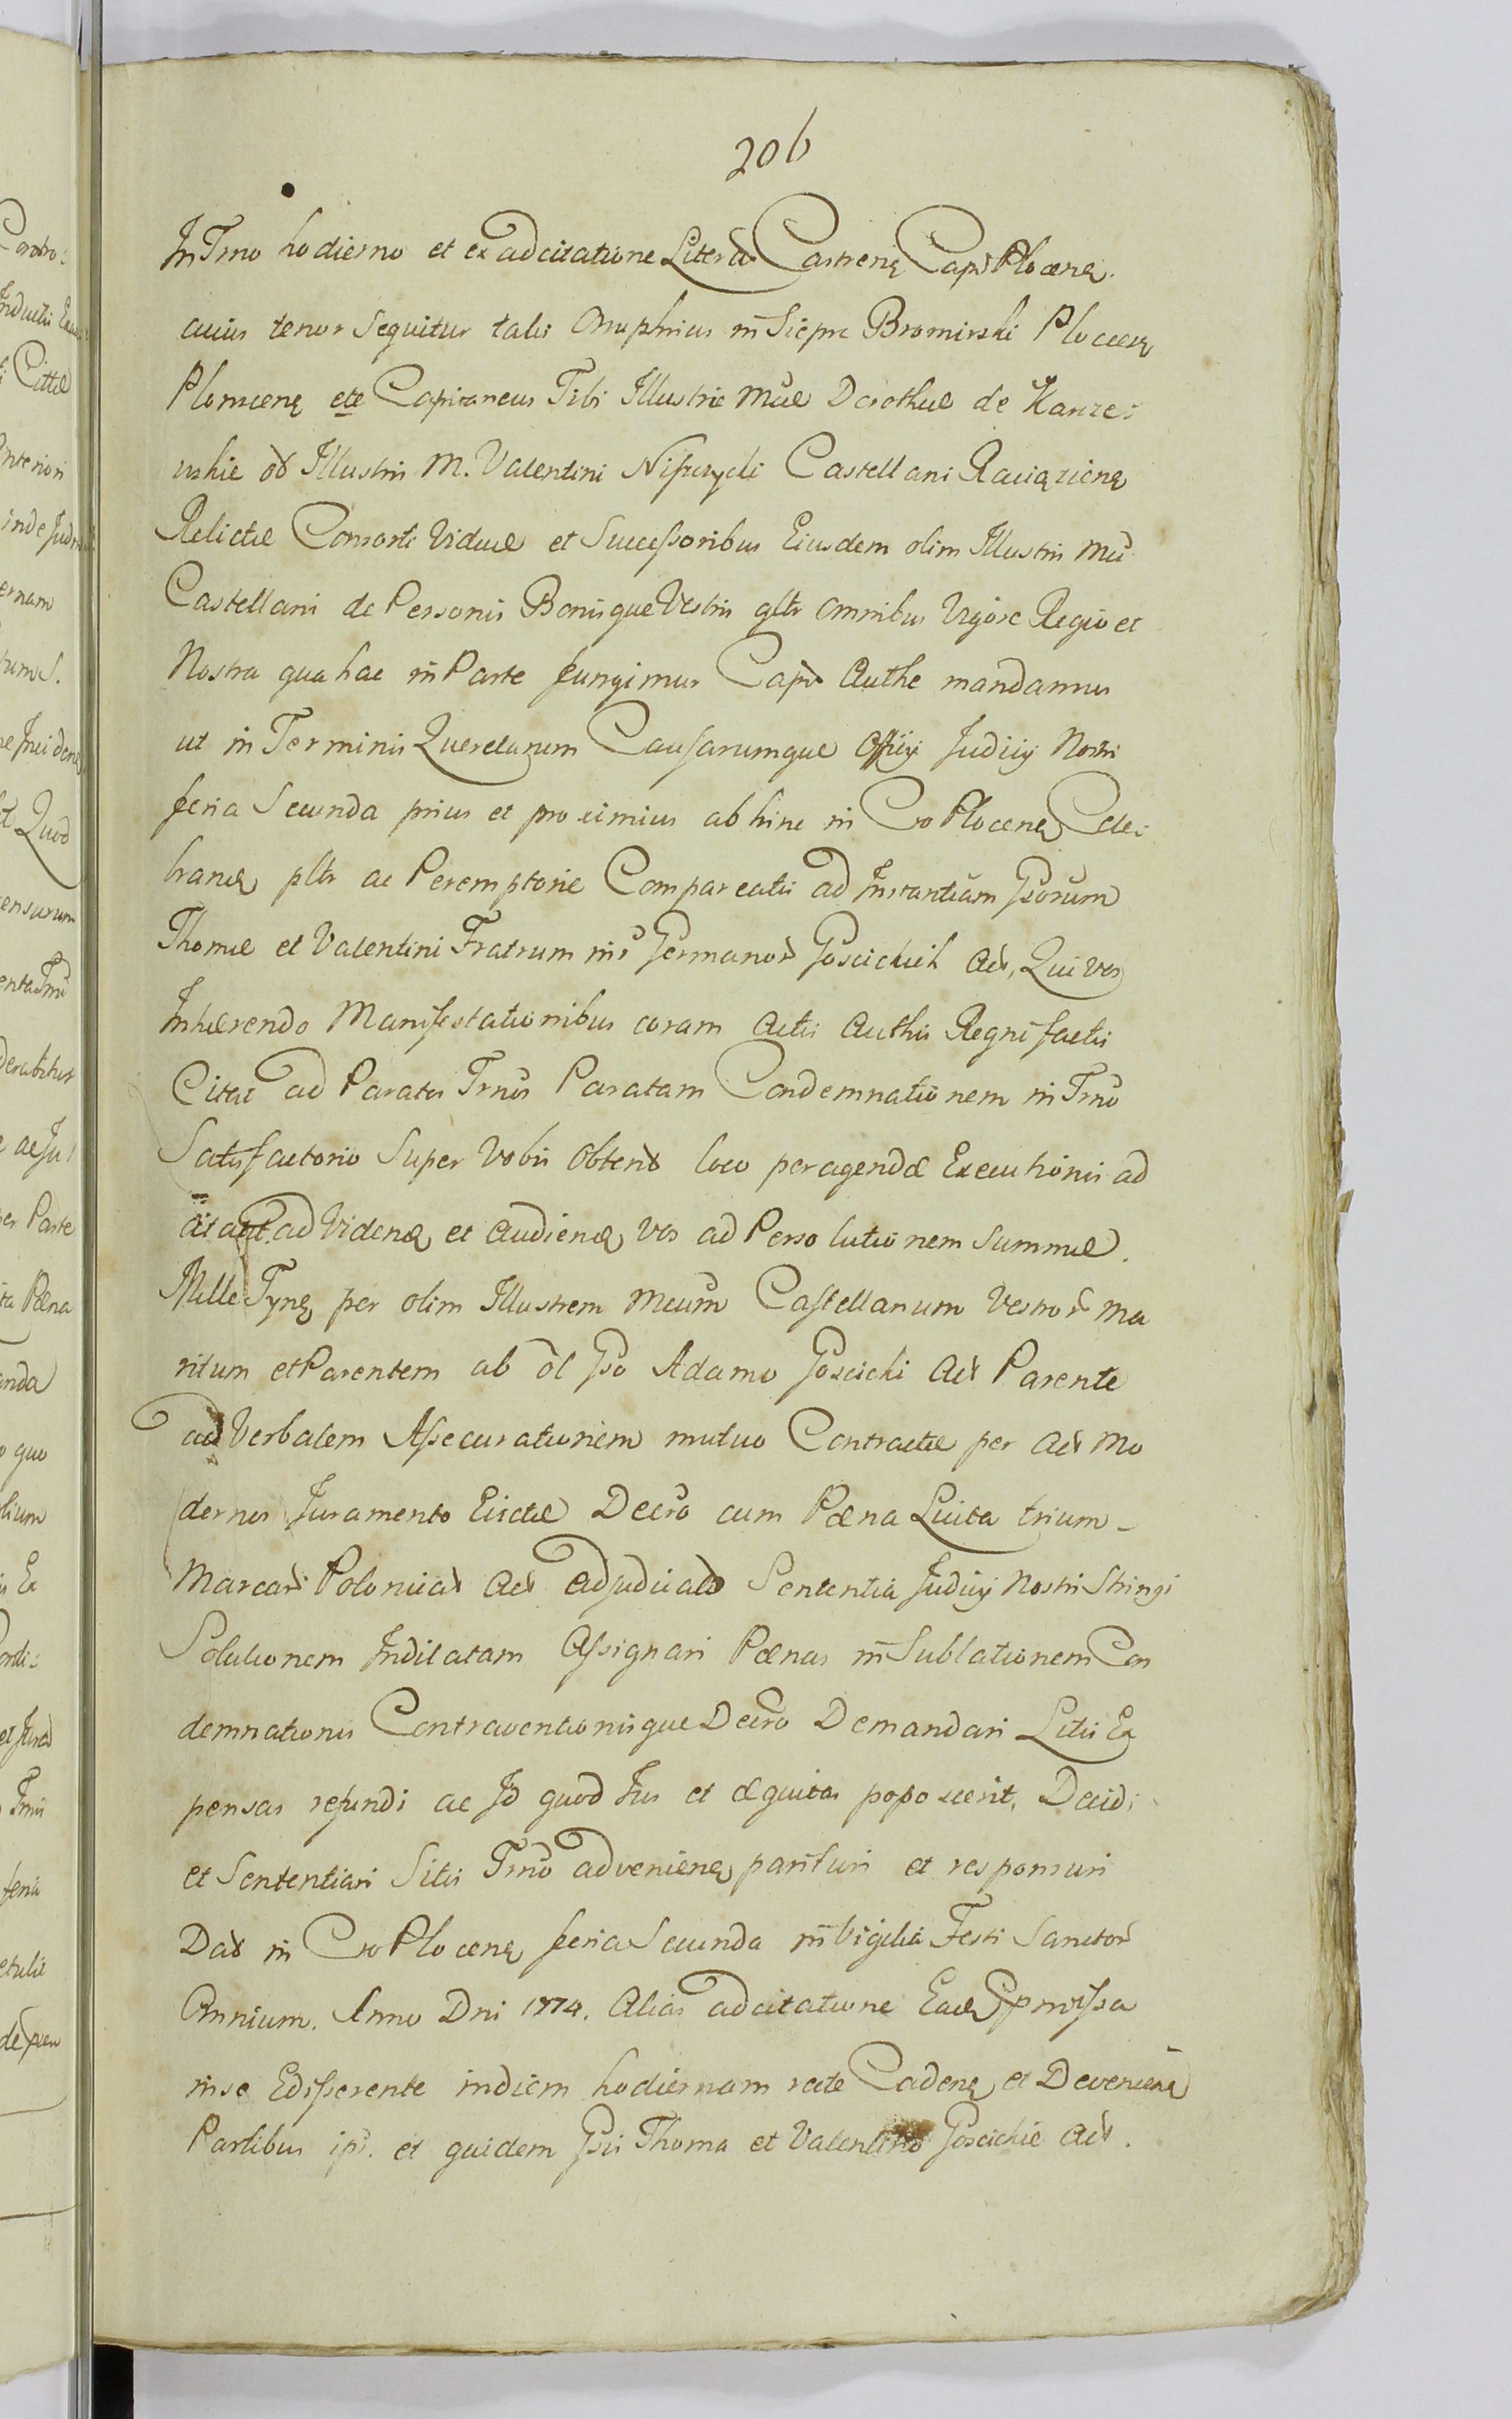 206
In Trno hodierno et ex adcitatione Liters Castrens Caps Plocens
cuius tenor Sequitur talis Onuphrius in Sieprc Bromirski Plocens
Płonscens etc Capitaneus Tibi Illustris Mcae Dorothae de Kanze:
wskie ol Illustris M. Valentini Nisczycki Castellani Raciąziens
Relictae Consorti Viduae et Successoribus Eiusdem olim Illustris Mci
Castellani de Personis Bonisque Vestris gltr omnibus Vigore Regio et
Nostra qua hac in Parte fungimur Caps Authe mandamus
ut in Terminis Querelarum Causarumque Officij Judicij Nostri
feria Secunda prius et proximius abhinc in Cro Plocens Cele:
brands pltr ac Peremptorie Compareatis ad Instantiam Gsorum
Thomae et Valentini Fratrum inr Germanor Goscickich Act, Qui vos
Inhaerendo Manifestationibus coram Actis Authis Regni factis
Citat ad Paratos Trnos Paratam Condemnationem in Trno
Satisfactorio Super Vobis Obtent loco peragendae Executionis ad
citant ad Videnď et Audienď vos ad Persolutionem Summae
Mille Tyns per olim Illustrem Mcum Castellanum Vestror Ma
ritum et Parentem ab ol Gso Adamo Goscicki Act Parente
ad Verbalem Assecurationem mutuo Contractae per Act Mo
dernos Juramento Evictae Decro cum Paena Luita trium
Marcar Polonical Act Adjudicato Sententia Judicij Nostri Stringi
Solutionem Indilatam Assignari Paenas in Sublationem Con
demnationis Contraventionisque Decro Demandari Litis Ex
pensas refundi ac Id quod Jus et aequitas poposcerit, Decidi
et Sententiari Sitis Trno adveniens parituri et responsuri
Dat in Cro Plocens feria Secunda in Vigilia Festi Sanctor
Omnium. Anno Dni 1774. Alias adcitatione Ead praemissa
in se Edisserente in diem hodiernam recte Cadens et Deveniens
Partibus ips. et quidem Gsis Thoma et Valentino Goscickie Act.